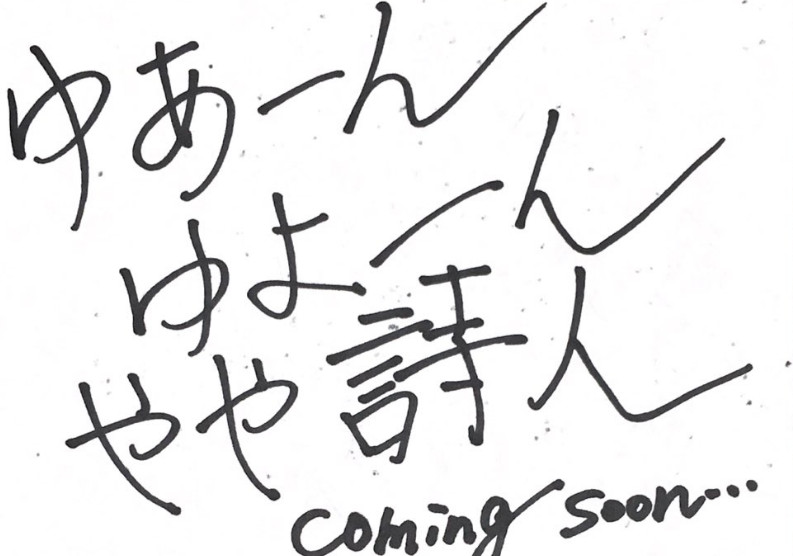 ゆあーん
ゆよーん
やや詩ん
coming soon...